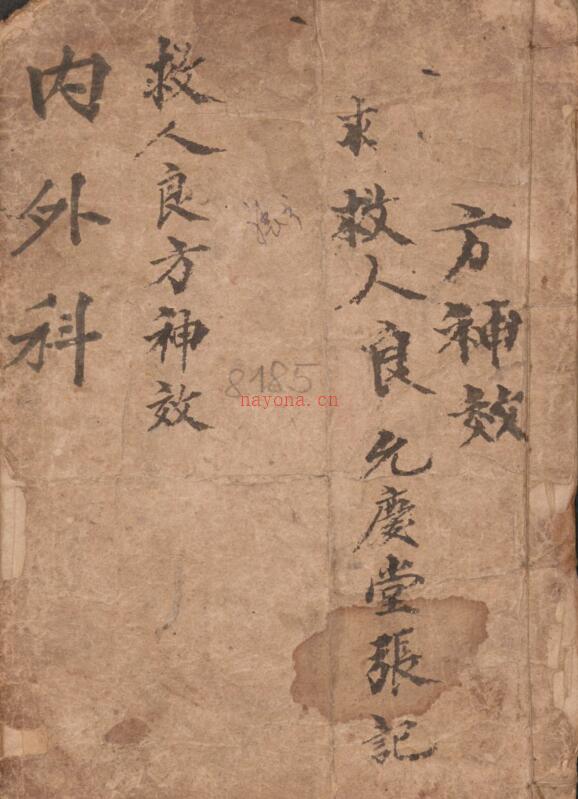 方神效
求救人良
允慶堂張記
救人良方神效
内外科
8185
nayona.cn